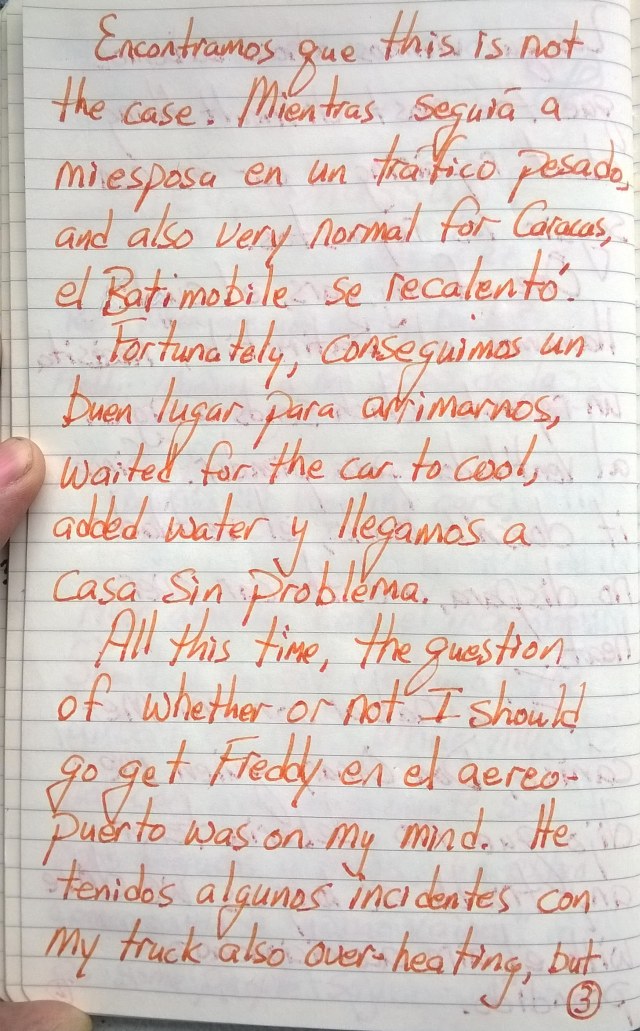 Encontramos que this is not
the case. Mientras seguiá a
mi esposa en un tráfico pesado,
and also very normal for Caracas,
el Batimobile se recalentó.
Fortunately, conseguimos un
buen lugar para arrimarnos,
waited for the car to cool,
added water y llegamos a
casa sin problema.
All this time, the question
of whether or not I should
go get Freddy en el aereo-
puerto was on my mind. He
tenidos algunos incidentes con
my truck also over-heating, but
3